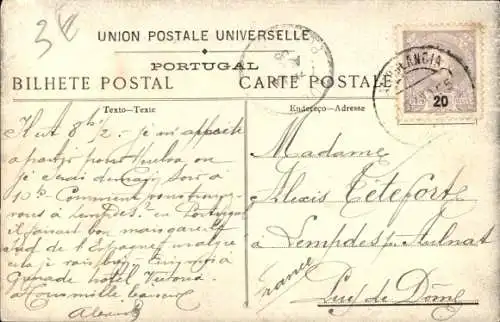 3
UNION POSTALE UNIVERSELLE
PORTUGAL
BILHETE POSTAL CARTE POSTALE
Texto-Texte
Endereço-Adresse
AMBULANCIA
20
Il est 8h 1/2 je m'apprête
à partir pour Huelva, ou
je serai demain soir à
10h. Comment vous trouvez
vous à Lempdes? en Portugal
il faisait bon mais gare le
Sud de l'Espagne malgré
cela je
Grenade hotel Victoria
Alexis
Madame
Alexis Tétefort
à Lempdes pr Aulnat
France
Puy de Dôme